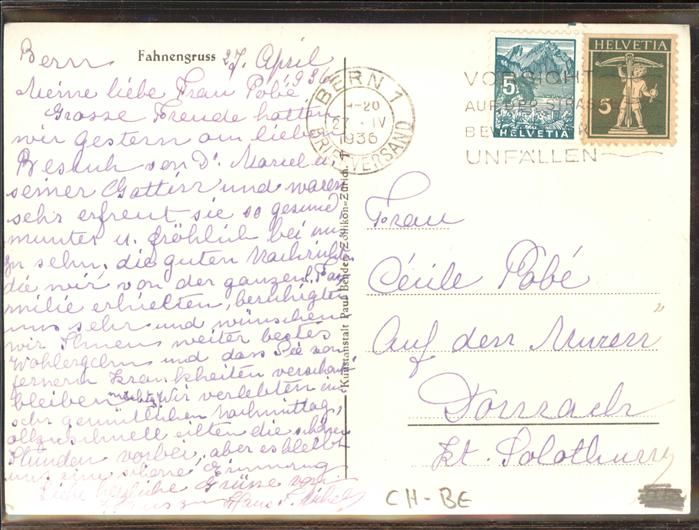 Bern 27. April
Fahnengruss
1936
Meine liebe Frau Pobé
Grosse Freude hatten
wir gestern am lieben
Besuch von Dr. Marcel u
seiner Gattin und waren
sehr erfreut sie so gesund
munter u. fröhlich bei uns
zu sehn, die guten Nachrichten
die wir von der ganzen Fa-
milie erhielten, beruhigten
uns sehr und wünschen
wir Ihnen weiter bestes
Wohlergehn und dass Sie von
fernern Krankheiten verschont
bleiben möchten. Wir verlebten ein
sehr gemütlichen Nachmittag,
allzuschnell eilten die schönen
Stunden vorbei, aber es bleibt
uns eine schöne Erinnerung
Liebe herzliche Grüsse von
Kunstanstalt Paul Bender, Zollikon-Zürich.
BERN 1
-20
27. IV
1936
BRIEFVERSAND
VORSICHT
AUF DER STRASSE
UNFÄLLEN
5
HELVETIA
HELVETIA
5
Frau
Cécile Pobé
"Auf den Muren"
Dornach
Kt. Solothurn
CH-BE